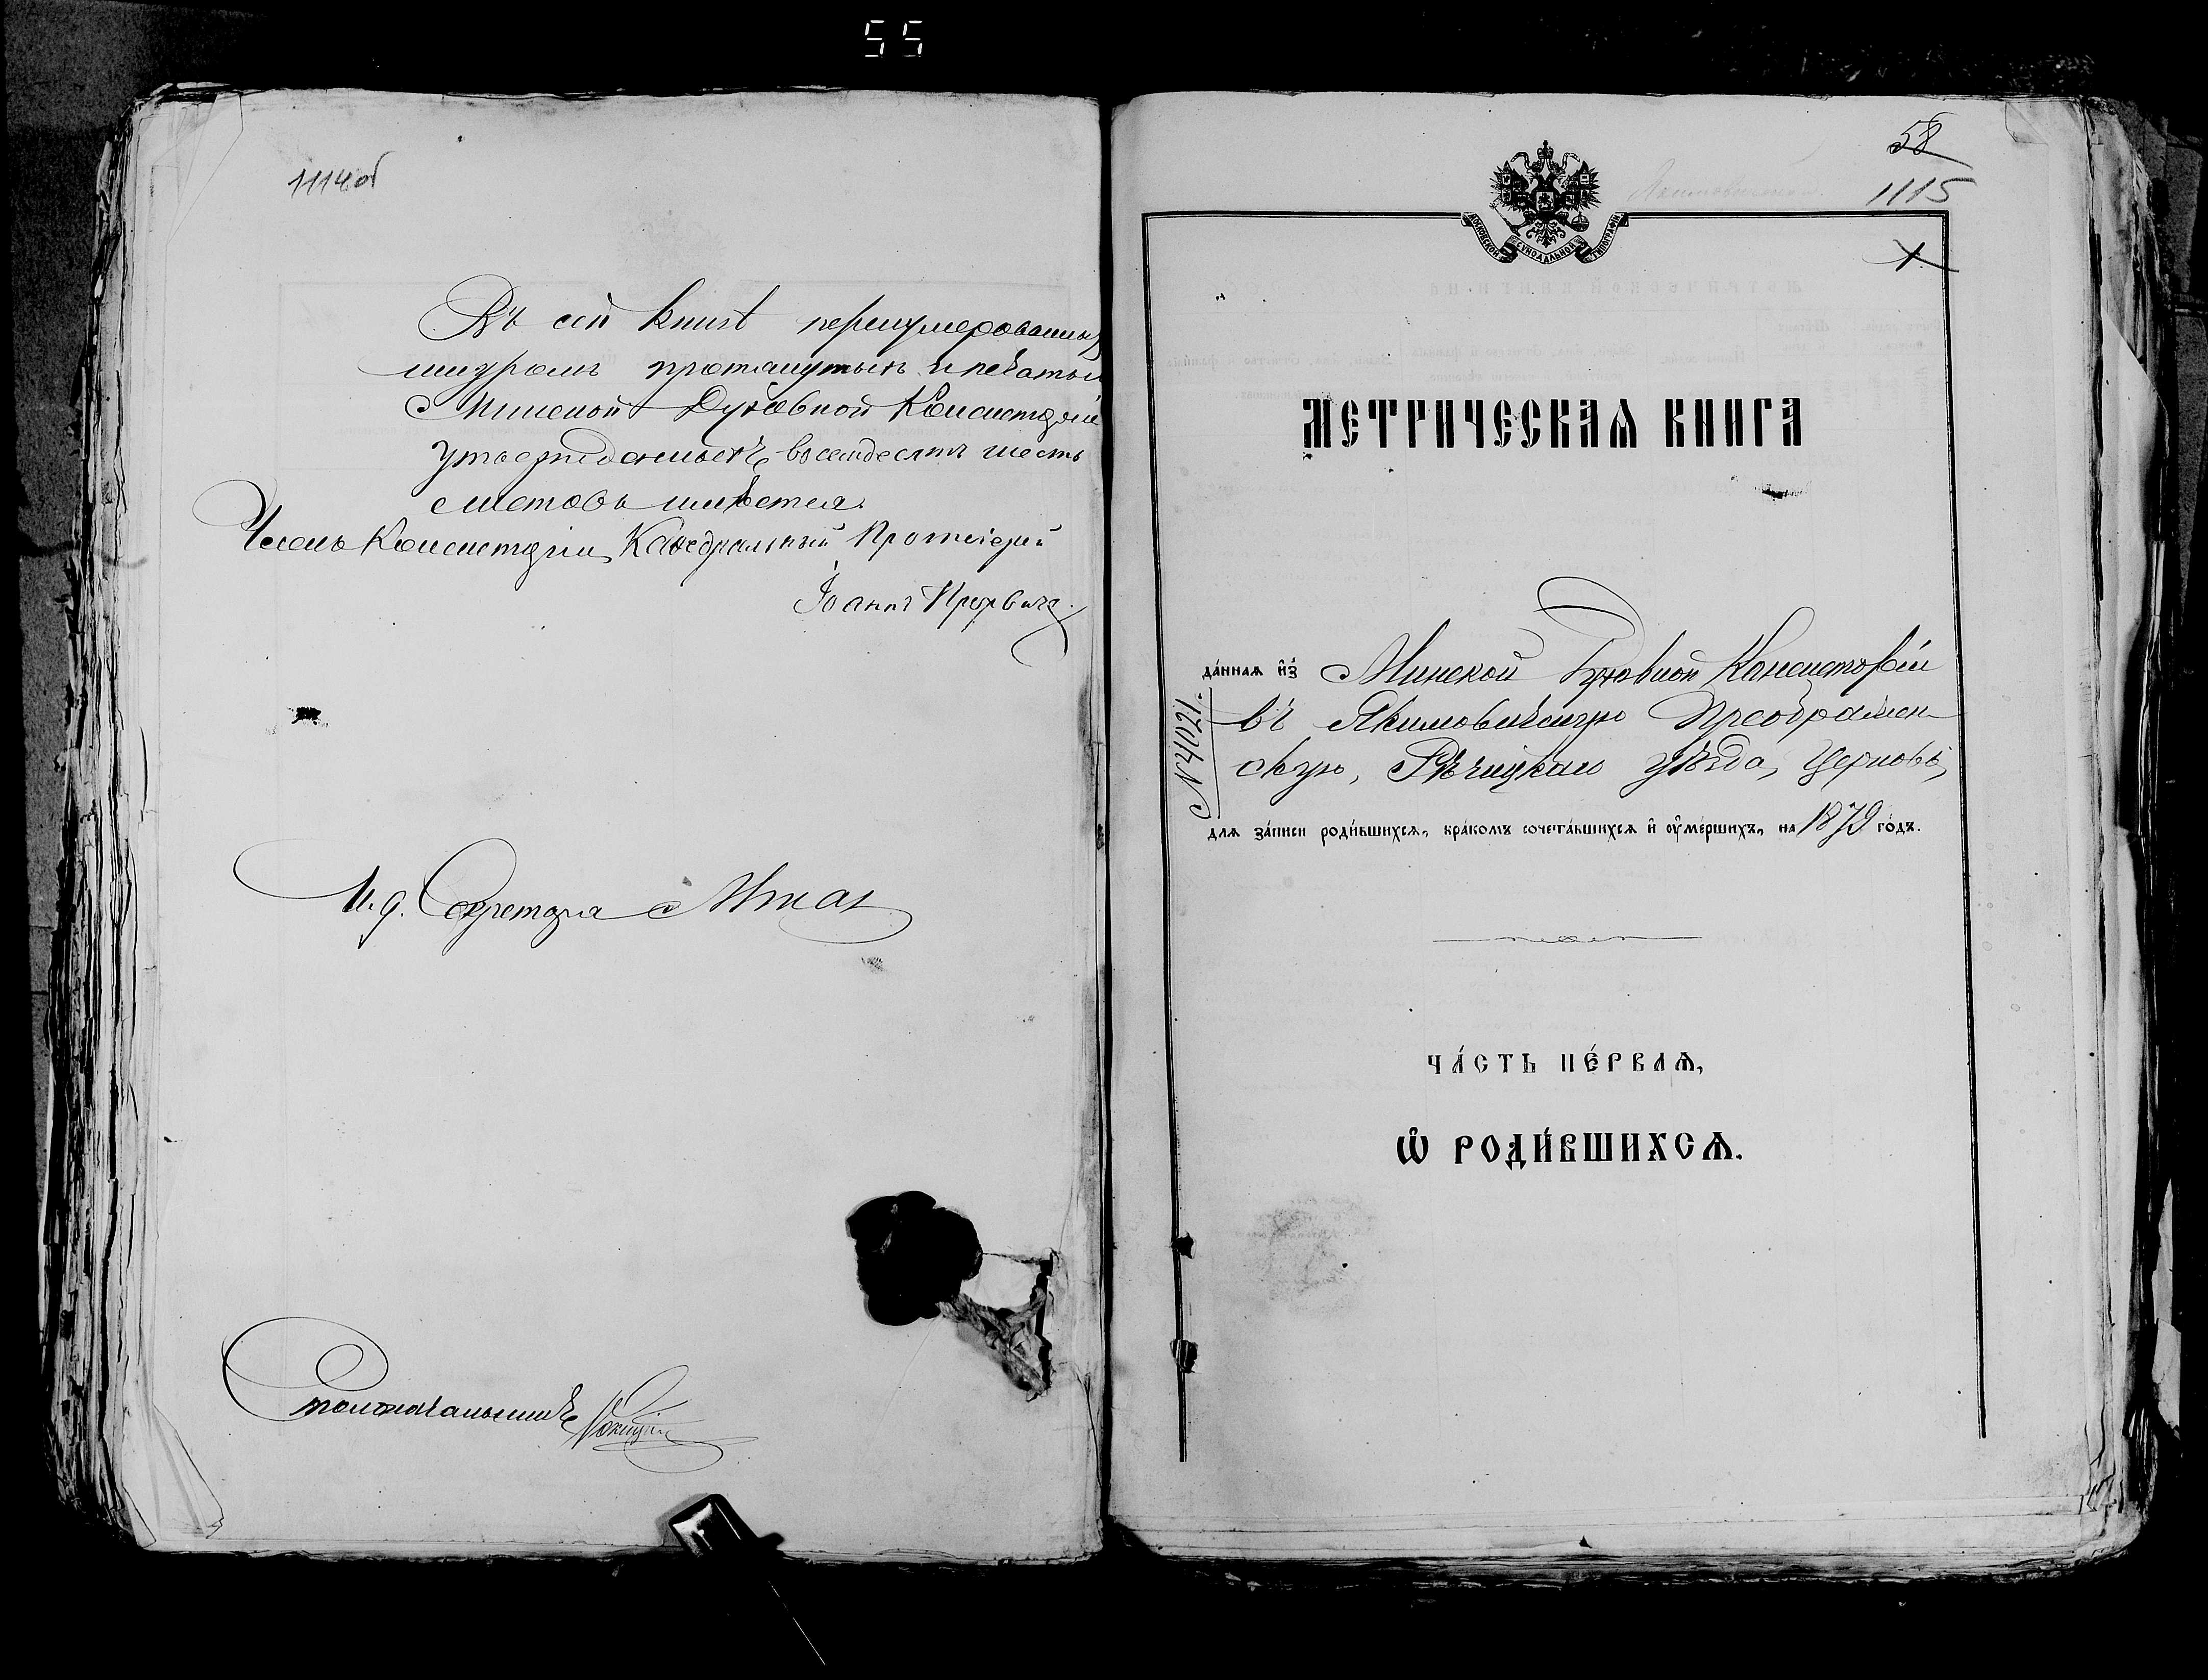 55
1114об
Въ сей книгѣ перенумерованныхъ
шнуромъ протянутыхъ и печатью
Минской Духовной Консисторіи
утвержденныхъ восемдесятъ шесть
листовъ имѣется.
Членъ Консисторіи, Каѳедральный Протоіерей
Іоаннъ
И. д. Секретаря
Столоначальникъ
58
1115
1
МОСКОВСКОЙ СѴНОДАЛЬНОЙ ТИПОГРАФІИ
МЕТРИЧЕСКАѦ КНИГА
да́ннаѧ и҆з̾ Минской Духовной Консисторіи
въ Якимовичскую Преображен-
скую, Рѣчицкаго уѣзда, Церковь,
№ 4021.
длѧ за́писи роди́вшихсѧ, бра́комъ сочета́вшихсѧ и҆ ᲂу҆ме́ршихъ, на 1879 го́дъ.
ЧА́СТЬ ПЕ́РВАѦ,
Ѡ҆ РОДИ́ВШИХСѦ.